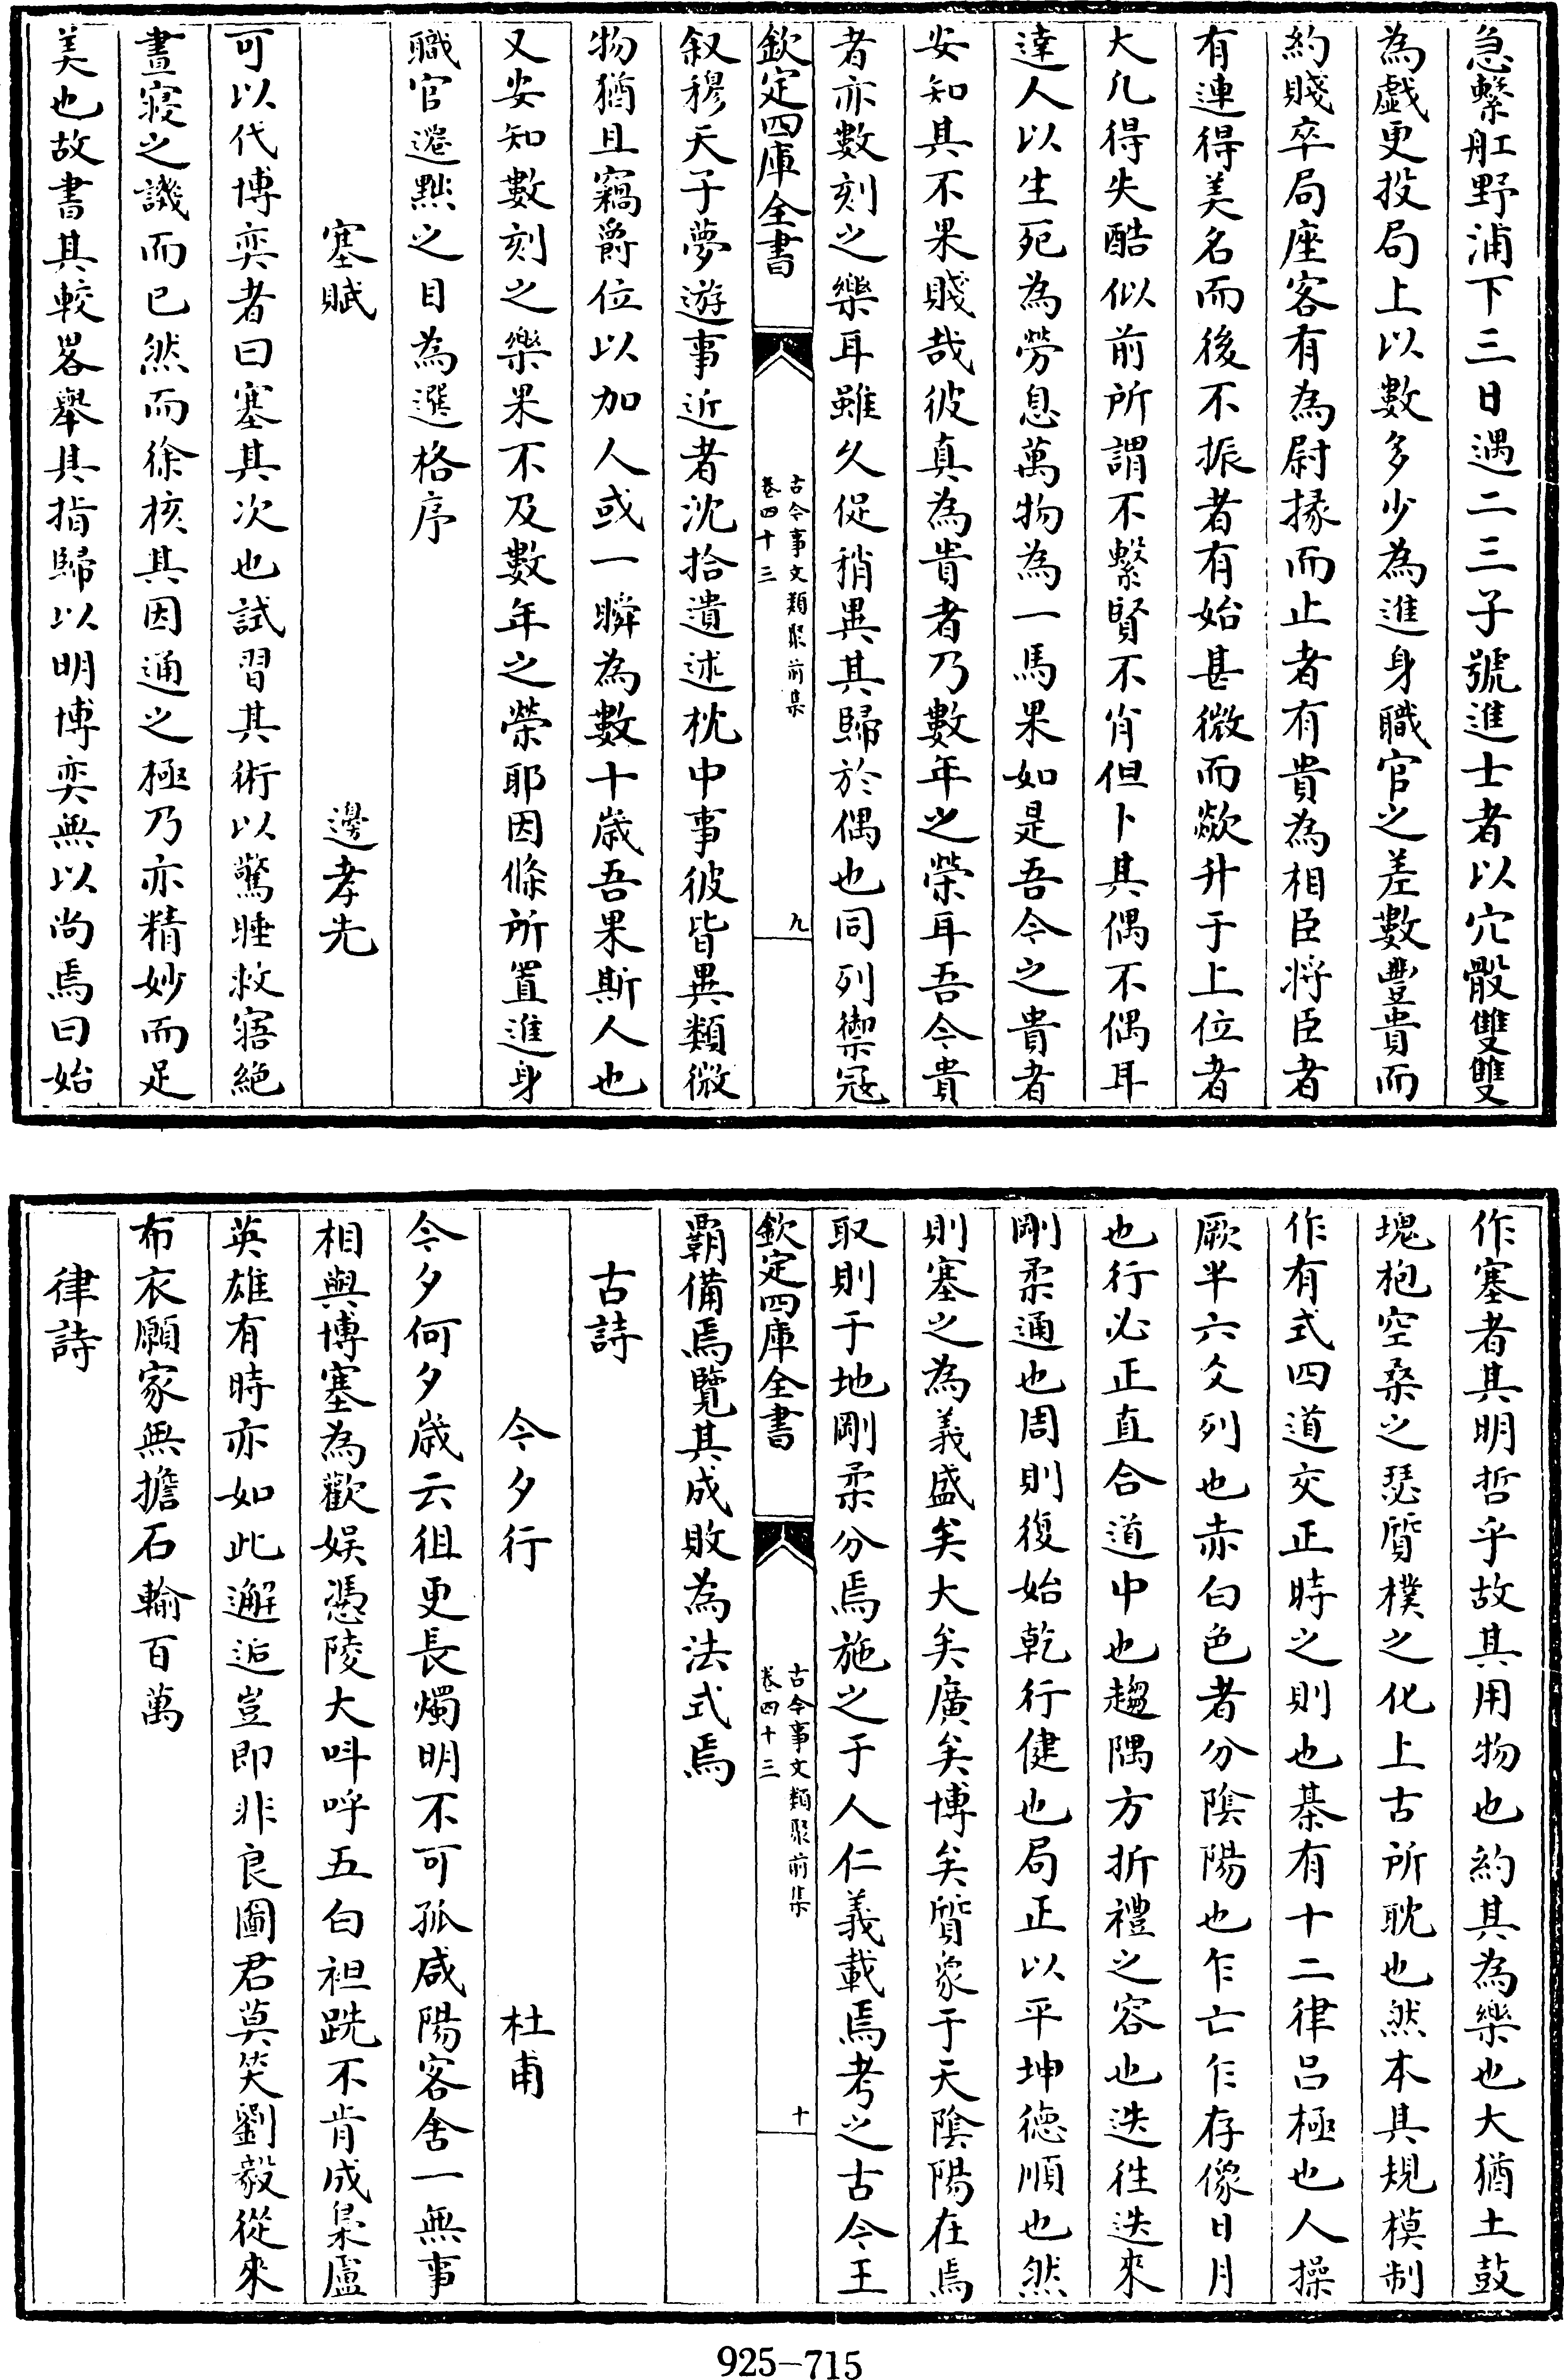 急繫舡野浦下三日遇二三子號進士者以穴骰雙雙
為戲更投局上以數多少為進身職官之差數豐貴而
約賤卒局座客有為尉掾而止者有貴為相臣将臣者
有連得美名而後不振者有始甚微而歘升于上位者
大凡得失酷似前所謂不繫賢不肖但卜其偶不偶耳
達人以生死為勞息萬物為一馬果如是吾今之貴者
安知其不果賤哉彼真為貴者乃數年之榮耳吾今貴
者亦數刻之樂耳雖久促稍異其歸於偶也同列禦冦
欽定四庫全書
古今事文類聚前集
卷四十三
九
叙穆天子夢遊事近者沈拾遺述枕中事彼皆異類微
物猶且竊爵位以加人或一瞬為數十歳吾果斯人也
又安知數刻之樂果不及數年之榮耶因條所置進身
職官遷黜之目為選格序
塞賦 邊孝先
可以代博奕者曰塞其次也試習其術以驚睡救寤絶
晝寢之譏而已然而徐核其因通之極乃亦精妙而足
美也故書其較畧舉其指歸以明博奕無以尚焉曰始
作塞者其明哲乎故其用物也約其為樂也大猶土鼓
塊枹空桑之瑟質樸之化上古所耽也然本其規模制
作有式四道交正時之則也棊有十二律呂極也人操
厥半六爻列也赤白色者分陰陽也乍亡乍存像日月
也行必正直合道中也趨隅方折禮之容也迭往迭來
剛柔通也周則復始乾行健也局正以平坤德順也然
則塞之為義盛矣大矣廣矣博矣質象于天陰陽在焉
取則于地剛柔分焉施之于人仁義載焉考之古今王
欽定四庫全書
古今事文類聚前集
卷四十三
十
覇備焉覽其成敗為法式焉
古詩
今夕行 杜甫
今夕何夕歳云徂更長燭明不可孤咸陽客舍一無事
相與博塞為歡娱憑陵大呌呼五白袒跣不肯成梟盧
英雄有時亦如此邂逅豈即非良圖君莫笑劉毅從來
布衣願家無擔石輸百萬
律詩
925-715